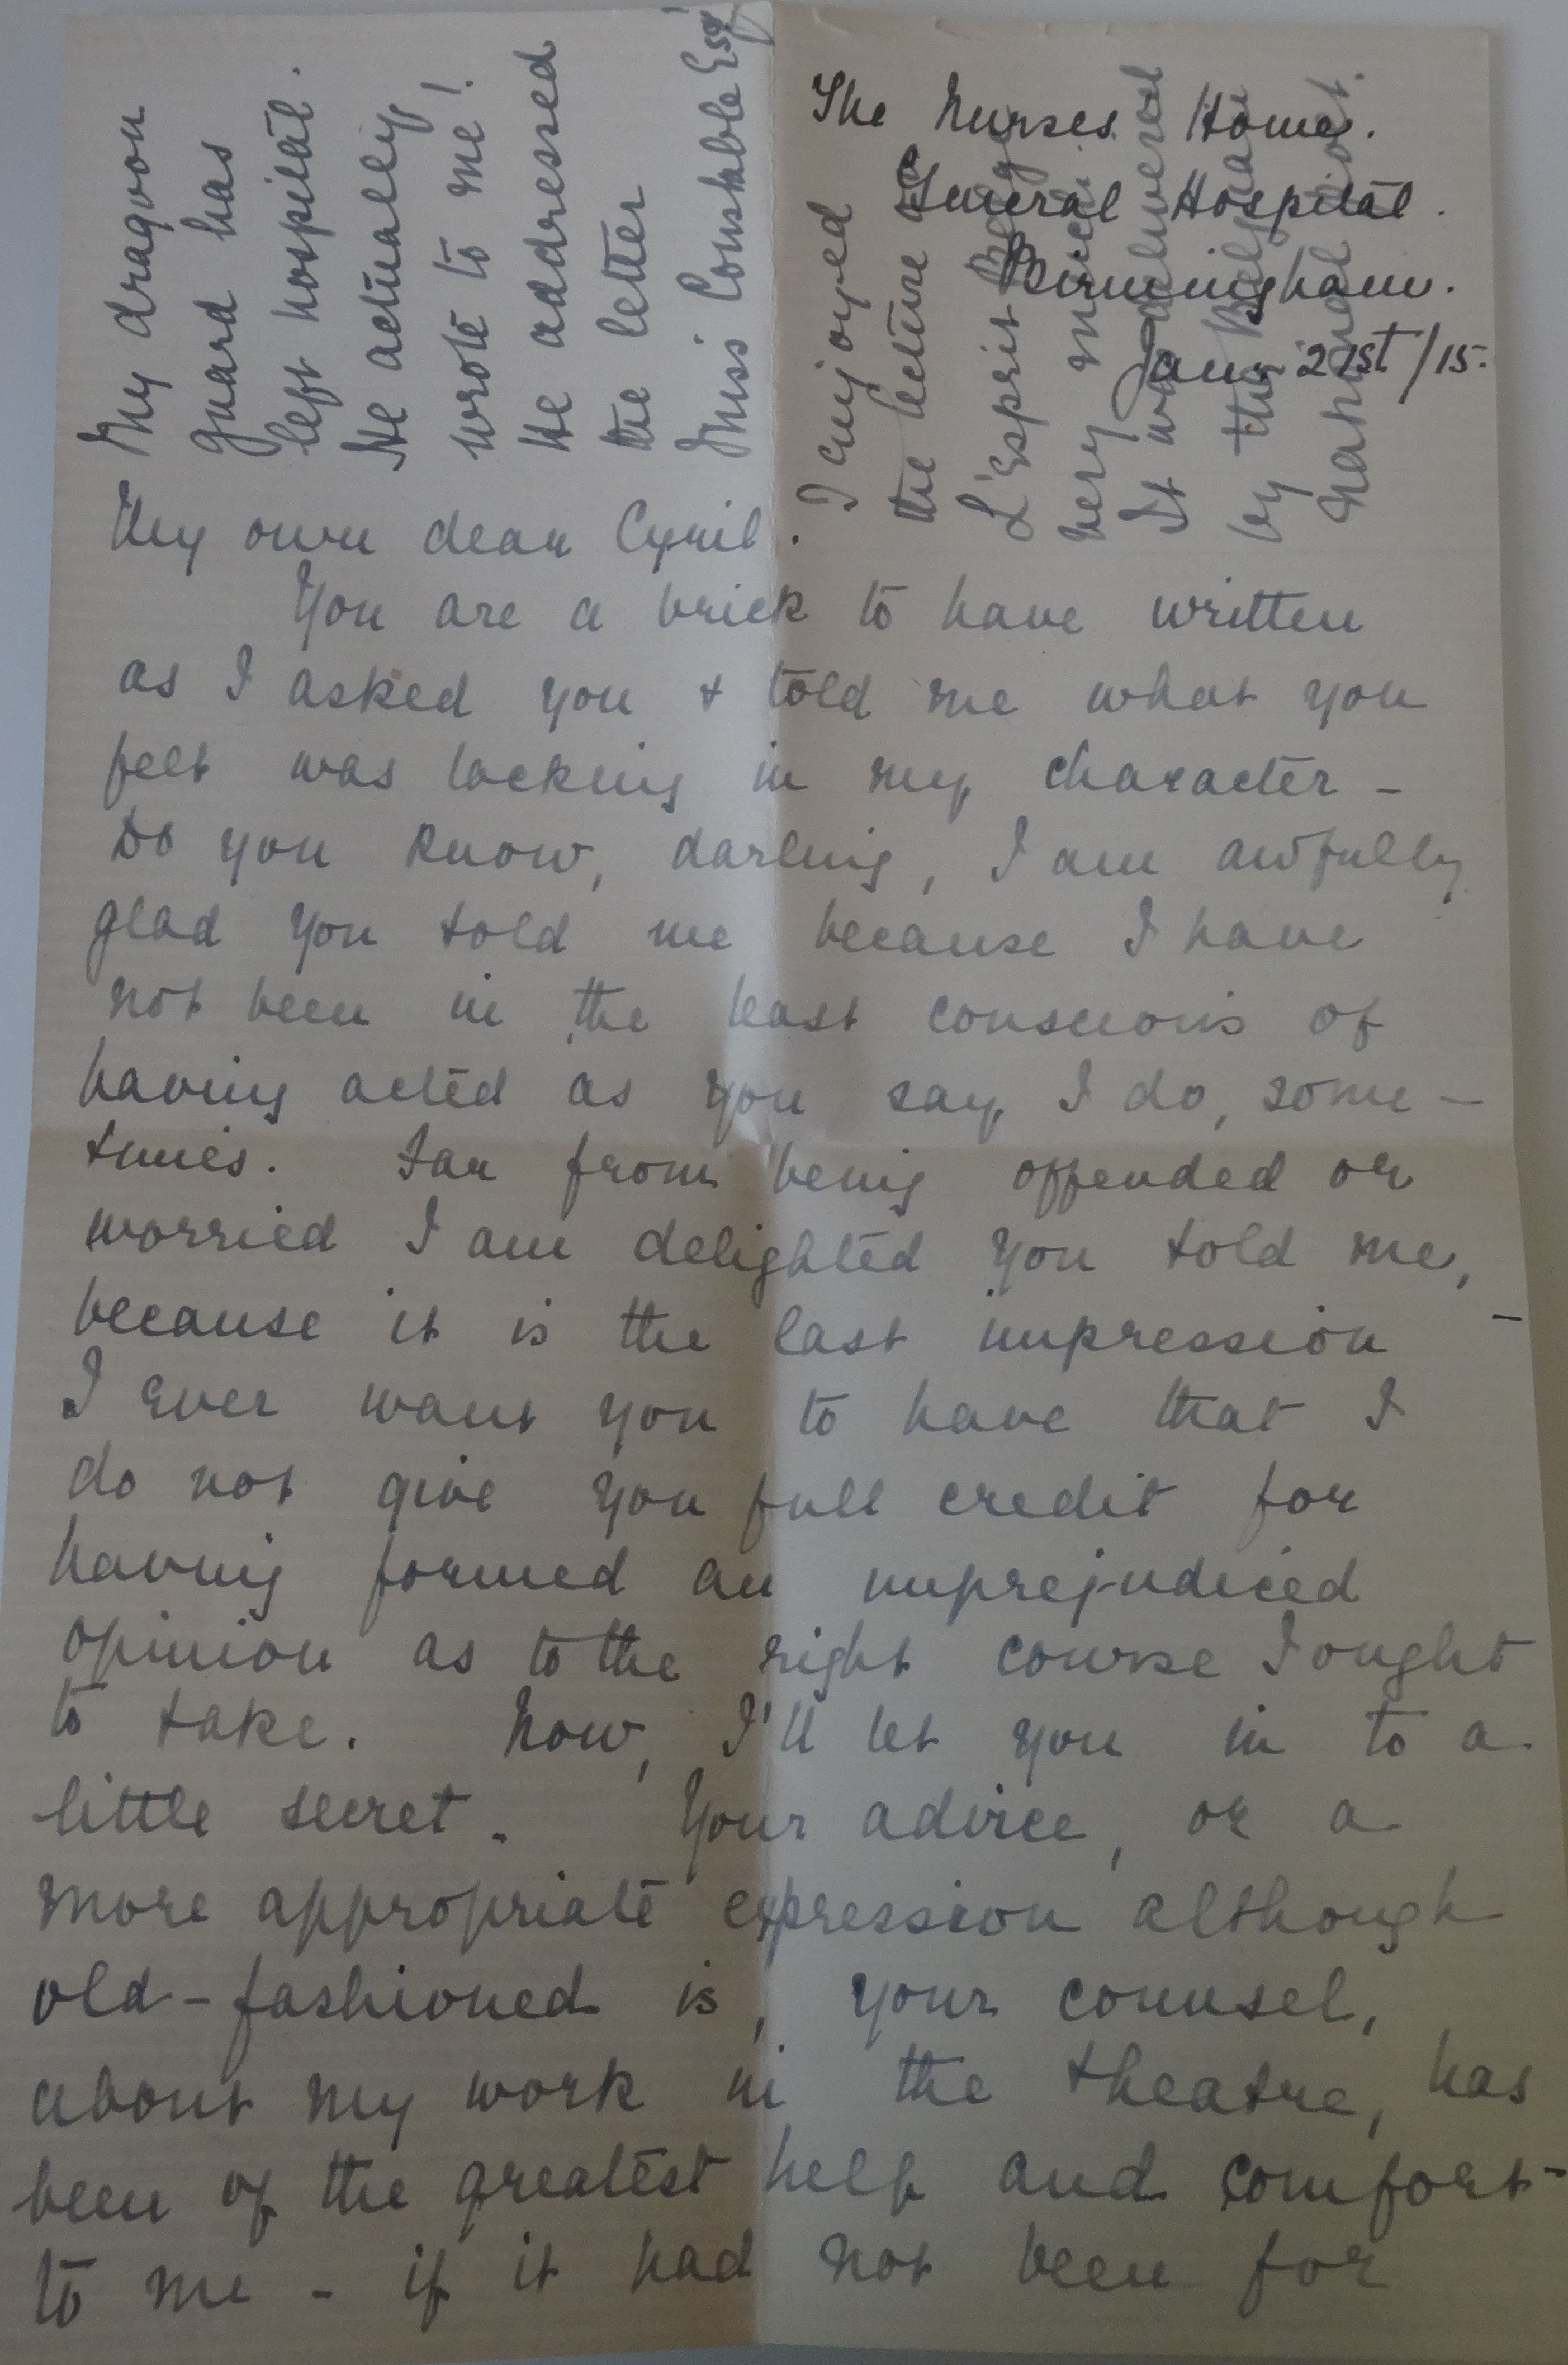 The Nurses Home.
General Hospital.
Birmingham.
Jany 21st/15.
My own dear Cyril.
You are a brick to have written
as I asked you + told me what you
felt was lacking in my character -
Do you know, darling, I am awfully
glad you told me because I have
not been in the least conscious of
having acted as you say I do, some-
times. Far from being offended or
worried I am delighted you told me,
because it is the last impression -
I ever want you to have that I
do not give you full credit for
having formed an unprejudiced
opinion as to the right course I ought
to take. Now, I'll let you in to a
little secret. Your advice, or a
more appropriate expression although
old-fashioned is, your counsel,
about my work in the theatre, has
been of the greatest help and comfort-
to me - if it had not been for
My dragoon
guard has
left hospital.
He actually
wrote to me!
He addressed
the letter
Miss Constable Esq
I enjoyed
the lecture on
L'Esprit Belge
very much.
It was delivered
by the Belgian